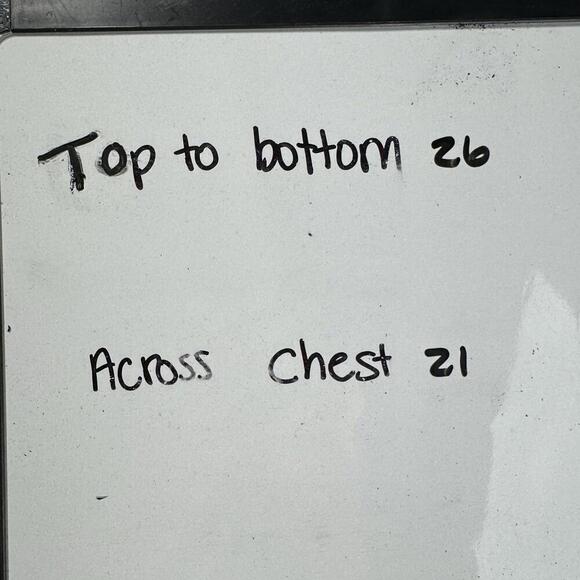 Top to bottom 26
Across Chest 21